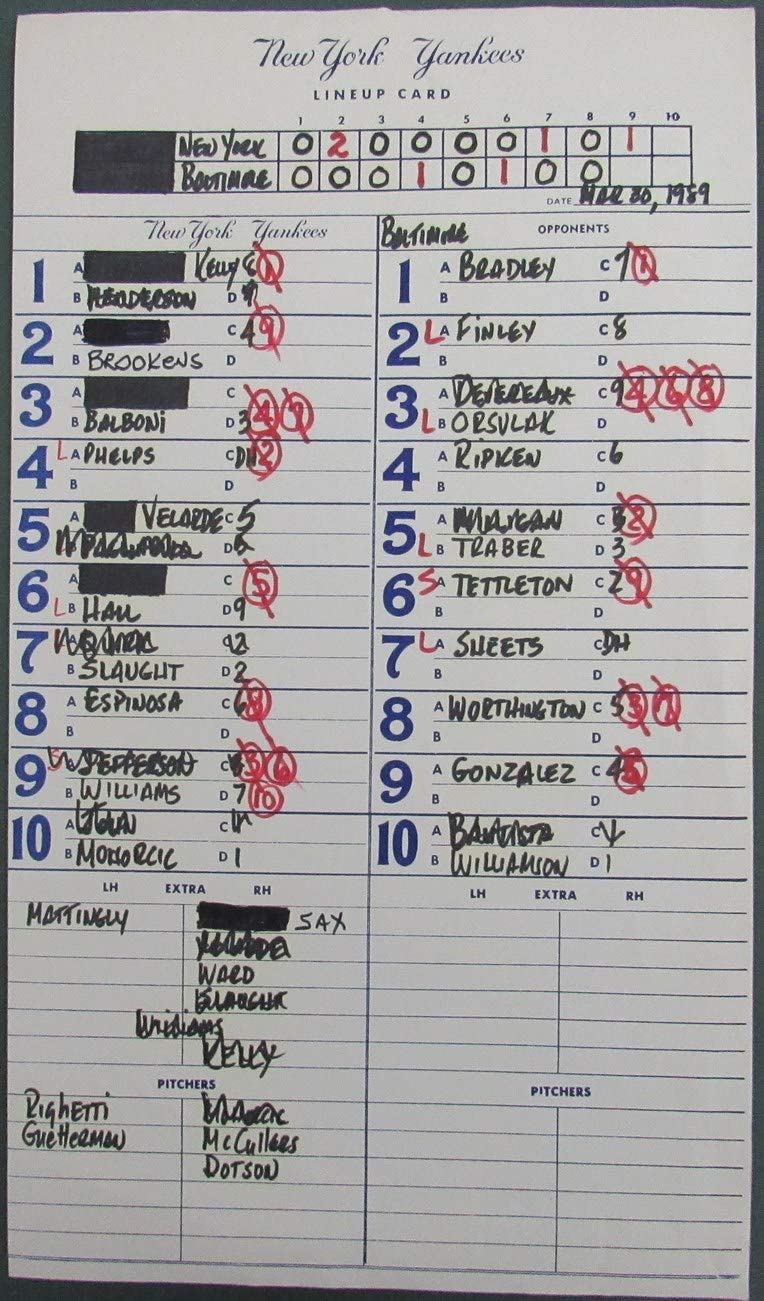 New York Yankees
LINEUP CARD
1 2 3 4 5 6 7 8 9 10
NEW YORK 0 2 0 0 0 0 1 0 1
BALTIMORE 0 0 0 1 0 1 0 0
DATE MAR 30, 1989
New York Yankees
1 A KELLY 8 1
B HENDERSON D
2 A C 4 9
B BROOKENS D
3 A C 4 9
B BALBONI D 3
4 L A PHELPS C DH 2
B D
5 A VELARDE C 5
D 6
6 A C 5
L B HALL D 9
7 2
B SLAUGHT D 2
8 A ESPINOSA C 6 8
B D
9 JEFFERSON C 8 3 6
B WILLIAMS D 7 10
10 A C
B MOHORCIC D 1
LH EXTRA RH
MATTINGLY SAX
VELARDE
WARD
SLAUGHT
Williams
KELLY
PITCHERS
RIGHETTI
GUETTERMAN McCullers
DOTSON
BALTIMORE OPPONENTS
1 A BRADLEY C 7 1
B D
2 L A FINLEY C 8
B D
3 A DEVEREAUX C 9 4 6 8
L B ORSULAK D
4 A RIPKEN C 6
B D
5 A MILLIGAN C 3 2
L B TRABER D 3
6 S A TETTLETON C 2 9
B D
7 L A SHEETS C DH
B D
8 A WORTHINGTON C 5 3 7
B D
9 A GONZALEZ C 4 5
B D
10 A BAUTISTA C
B WILLIAMSON D 1
LH EXTRA RH
PITCHERS